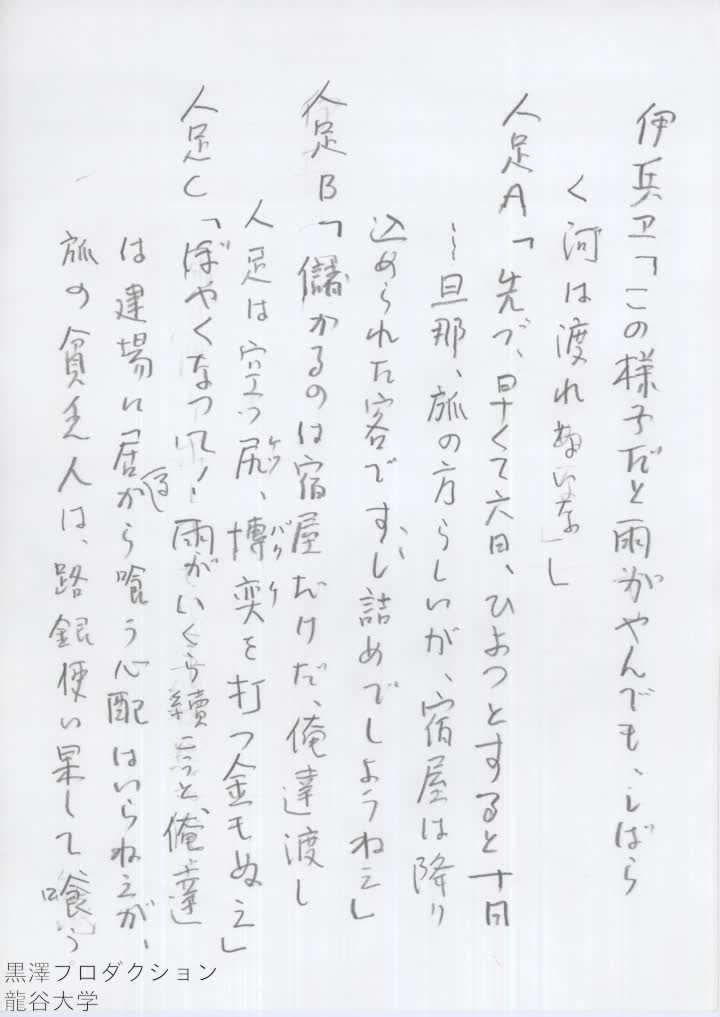 伊兵卫「この様子だと雨がやんでも、しばら
く河は渡れぬいな」
人足A「先づ、早くて六日、ひよつとすると十日
…旦那、旅の方らしいが、宿屋は降り
込められた客です、し詰めでしようねえ」
人足B「儲かるのは宿屋だけだ、俺達渡し
人足は空ッ尻、博奕を打つ金もねえ」
ケツ
バクチ
人足C「ぼやくなつて!雨がいくら続こうと、俺達
は建場に居乍ら喰う心配はいらねえが、
旅の貧乏人は、路銀使い果して喰う
黒澤プロダクション
龍谷大学